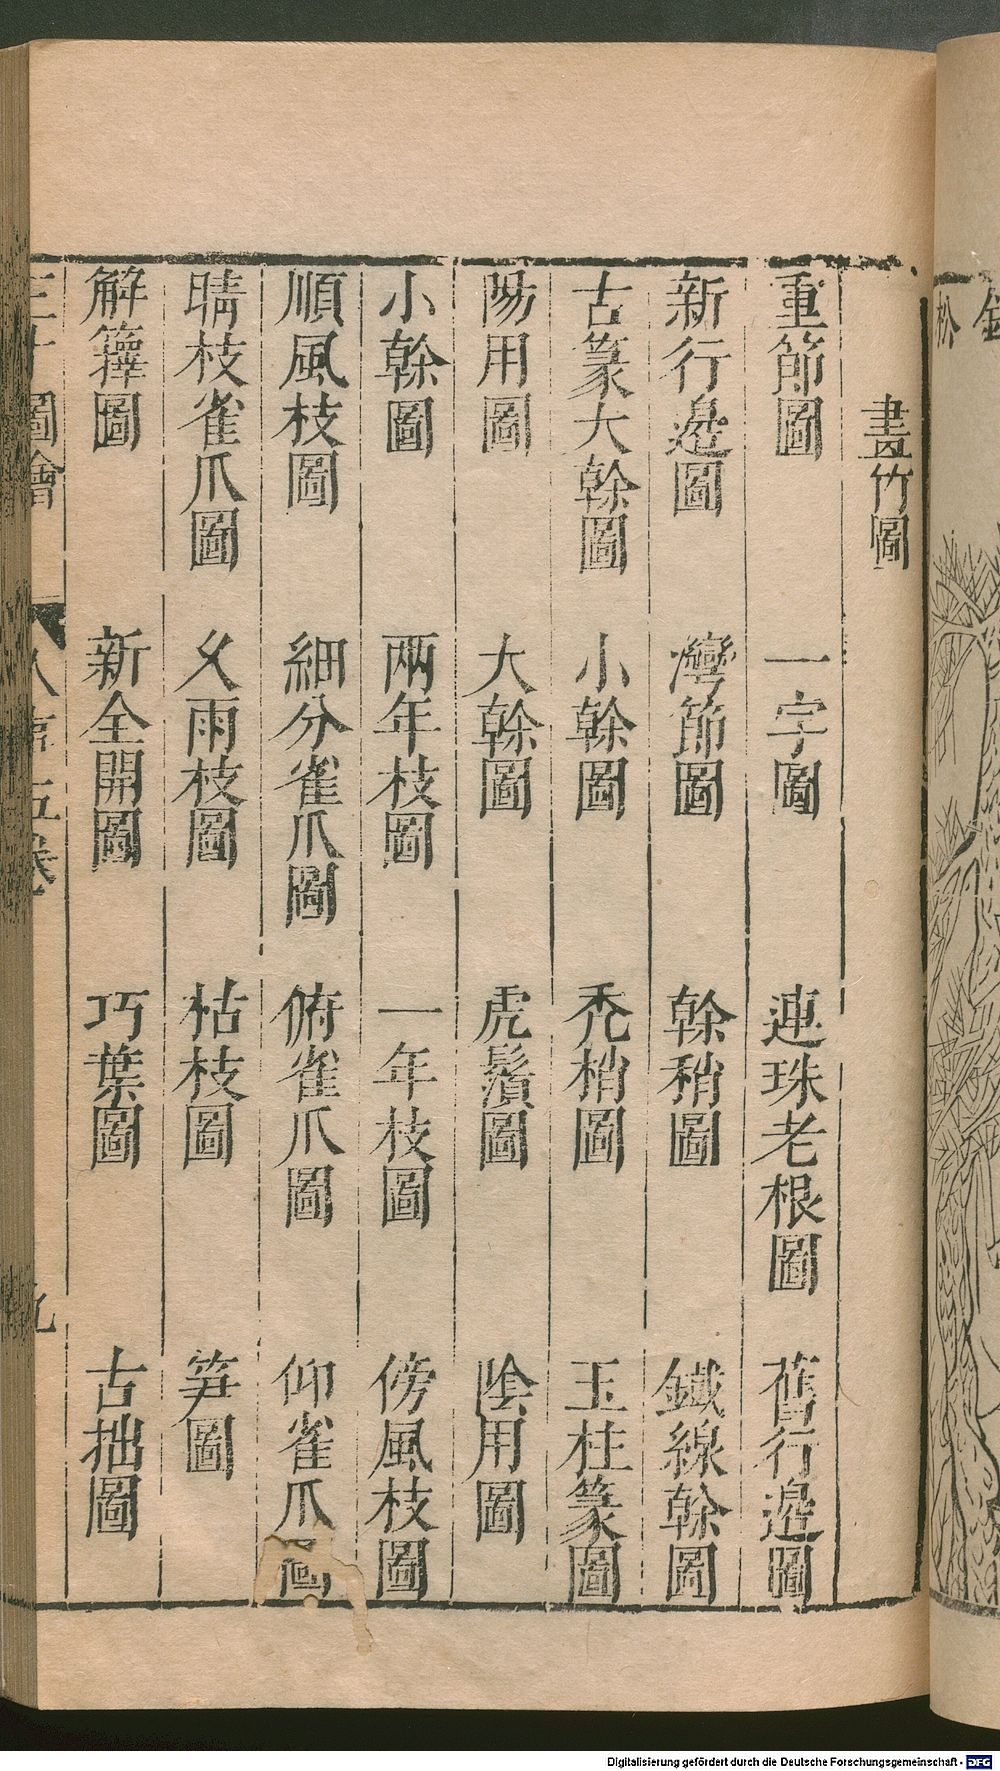 畫竹圖
重節圖 一字圖 連珠老根圖 舊行邉圖
新行邉圖 灣節圖 幹稍圖 鐵線幹圖
古篆大幹圖 小幹圖 禿梢圖 玉柱篆圖
陽用圖 大幹圖 虎鬚圖 陰用圖
小幹圖 兩年枝圖 一年枝圖 傍風枝圖
順風枝圖 細分雀爪圖 俯雀爪圖 仰雀爪圖
晴枝雀爪圖 乂雨枝圖 枯枝圖 笋圖
解籜圖 新全開圖 巧葉圖 古拙圖
三才圖會 人事五卷 九
松
Digitalisierung gefördert durch die Deutsche Forschungsgemeinschaft - DFG